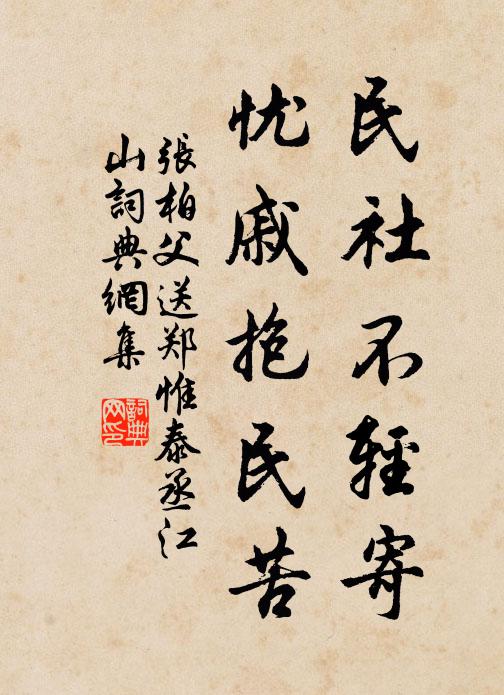 民社不輕寄
忧戚抱民苦
張柏父送郑惟泰丞江
山詞典網集
詞典
网印